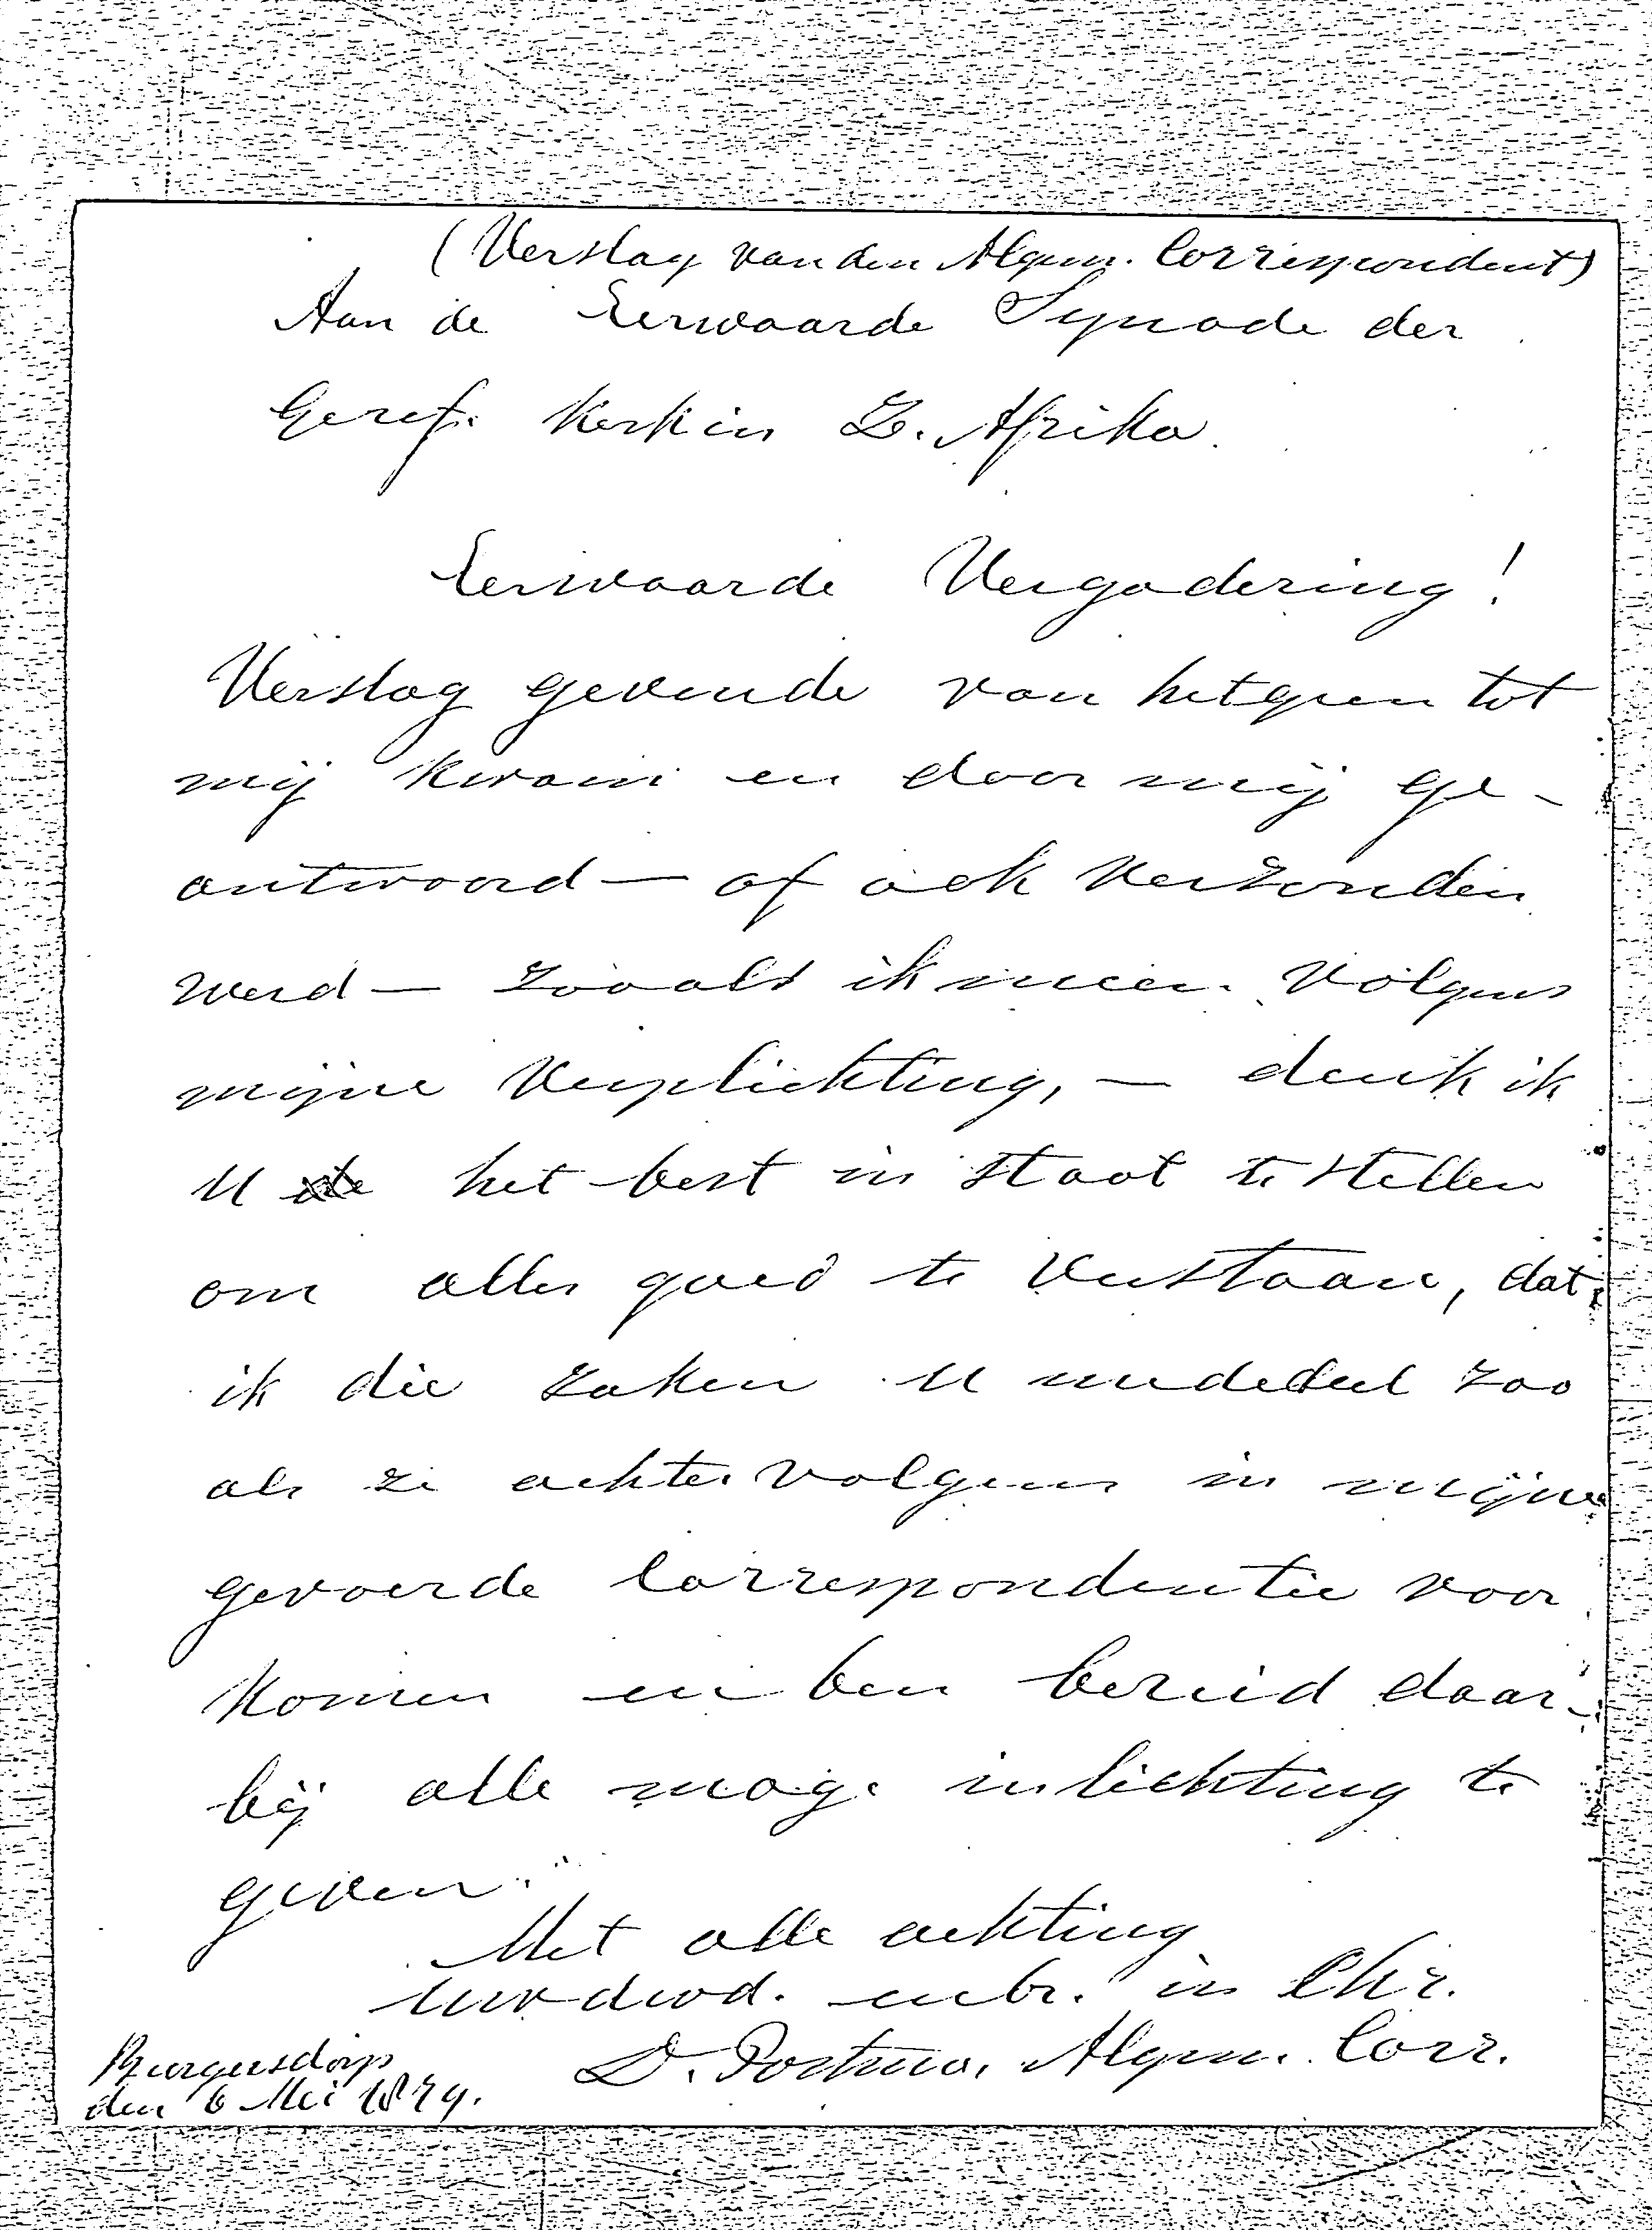 (Verslag van den Algem. Correspondent)
Aan de Eerwaarde Synode der
Geref. Kerk in Z. Afrika.
Eerwaarde Vergadering!
Verslag gevende van hetgeen tot
mij kwam en door mij ge-
antwoord — of ook verzonden
werd — zooals ik meen. Volgens
mijne Verplichting, — denk ik
U het best in staat te stellen
om alles goed te verstaan, dat
ik die zaken U mededeel zoo
als ze achtervolgens in mijne
gevoerde Correspondentie voor
komen en ben bereid daar-
bij alle mog. inlichting te
geven.
Met alle achting
Uw dwd. mbr. in Chr.
D. Postma, Algem. Corr.
Burgersdorp
den 6 Mei 1879.